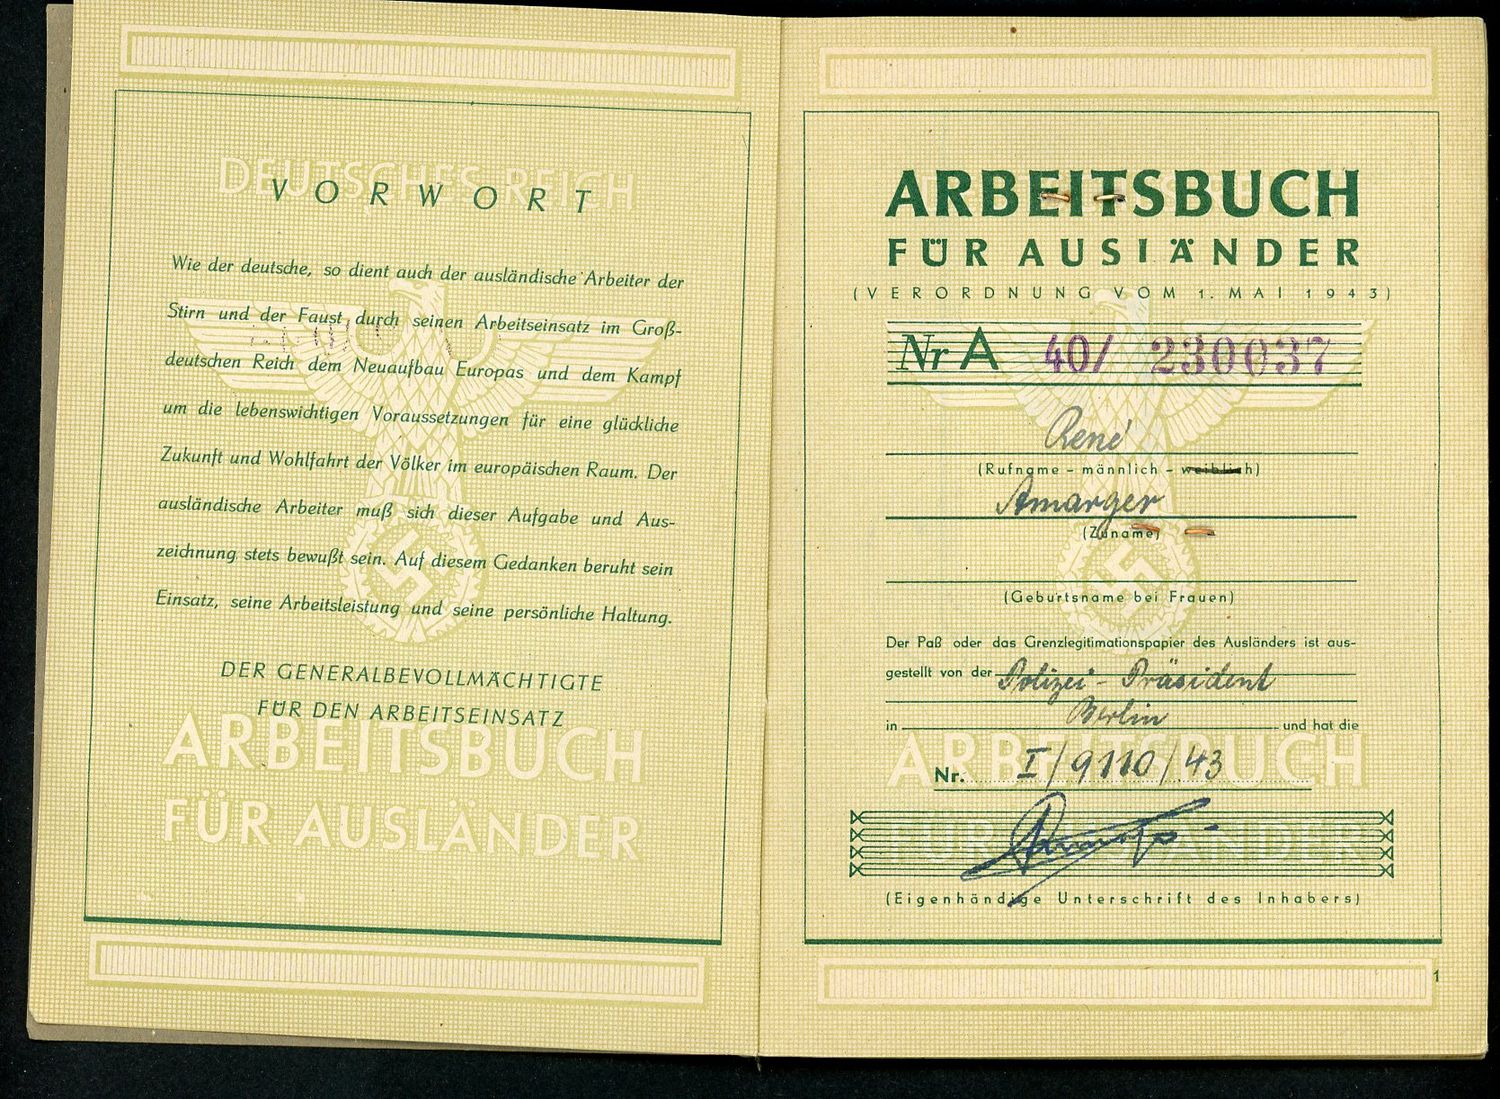 DEUTSCHES REICH
VORWORT
Wie der deutsche, so dient auch der ausländische Arbeiter der
Stirn und der Faust durch seinen Arbeitseinsatz im Groß-
deutschen Reich dem Neuaufbau Europas und dem Kampf
um die lebenswichtigen Voraussetzungen für eine glückliche
Zukunft und Wohlfahrt der Völker im europäischen Raum. Der
ausländische Arbeiter muß sich dieser Aufgabe und Aus-
zeichnung stets bewußt sein. Auf diesem Gedanken beruht sein
Einsatz, seine Arbeitsleistung und seine persönliche Haltung.
DER GENERALBEVOLLMÄCHTIGTE
FÜR DEN ARBEITSEINSATZ
ARBEITSBUCH
FÜR AUSLÄNDER
ARBEITSBUCH
FÜR AUSLÄNDER
(VERORDNUNG VOM 1. MAI 1943)
Nr A 40/ 230037
René
(Rufname - männlich - weiblich)
Amarger
(Zuname)
(Geburtsname bei Frauen)
Der Paß oder das Grenzlegitimationspapier des Ausländers ist aus-
gestellt von der Polizei-Präsident
in Berlin und hat die
ARBEITSBUCH
Nr. I/9110/43
FÜR AUSLÄNDER
(Eigenhändige Unterschrift des Inhabers)
1